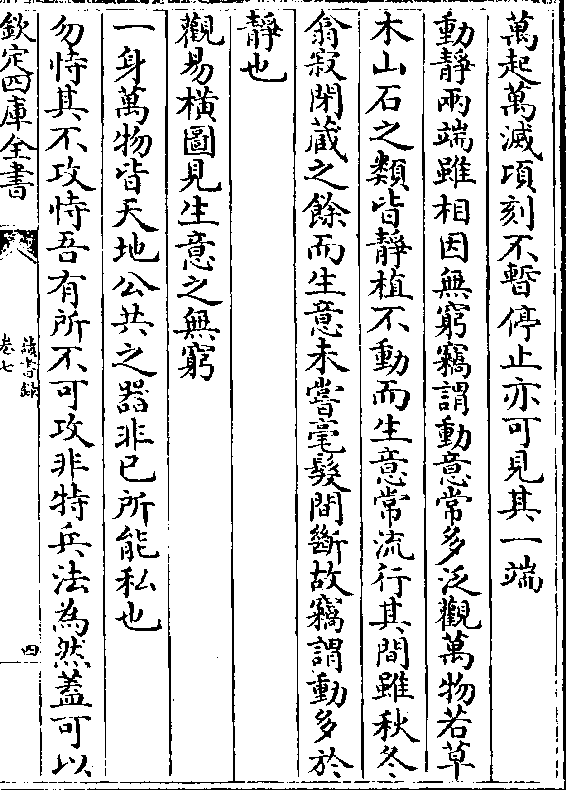 萬起萬滅項刻不暫停止亦可見其一端
動靜兩端雖相因無窮竊謂動意常多泛觀萬物若草
木山石之類皆靜植不動而生意常流行其間雖秋冬
翕寂閉藏之餘而生意未嘗毫髮間斷故竊謂動多於
靜也
觀易橫圖見生意之無窮
一身萬物皆天地公共之器非己所能私也
勿恃其不攻恃吾有所不可攻非特兵法為然蓋可以
欽定四庫全書
讀書録
卷七
四